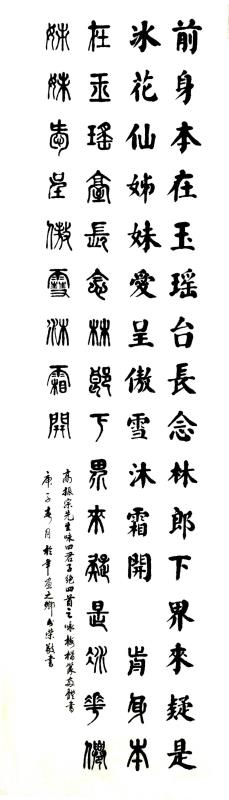 前身本在玉瑶台長念林郎下界来疑是
氷花仙姊妹愛呈傲雪沐霜開 前身本
在玉瑤臺長念林郎下界來疑是冰華僊
姊妹愛呈傲雪沐霜開
高振宗先生咏四君子绝四首之咏梅楷篆両體書
庚子春月於之鄉崇敬書